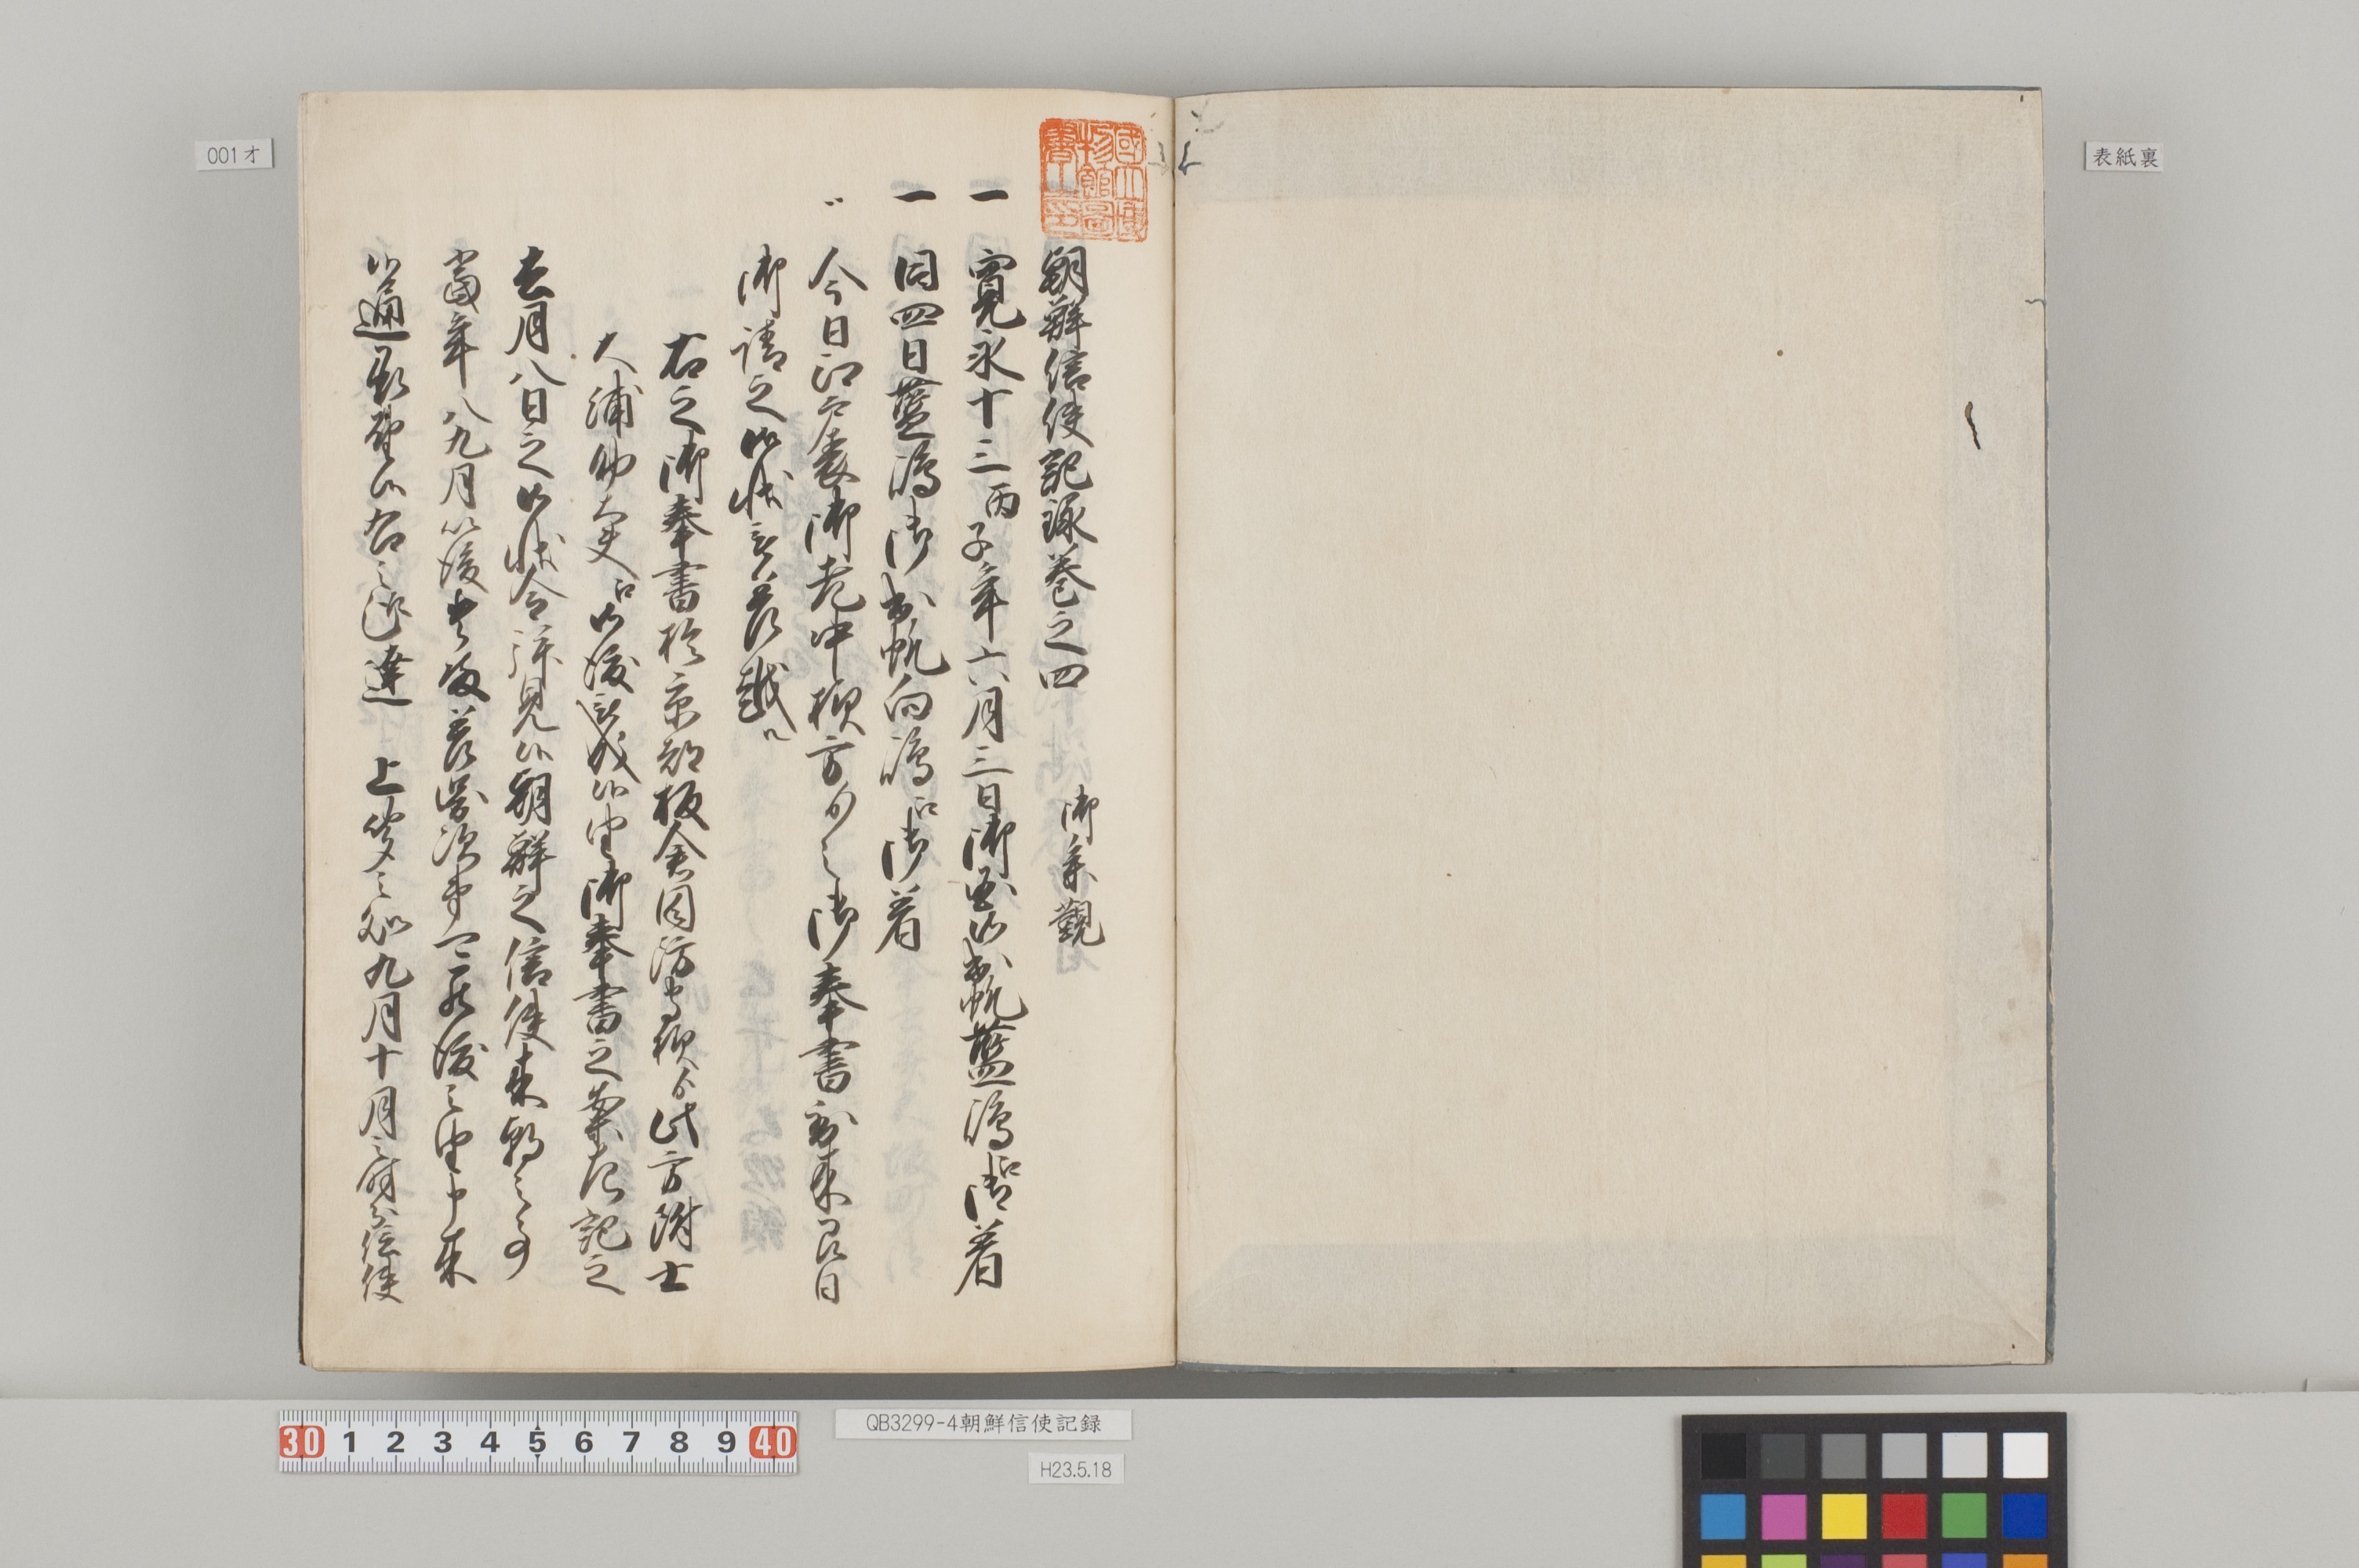 表紙裏
國立博
物館圖
書之印
朝鮮信使記録巻之四
御参観
一 寛永十三丙子年六月三日御国御出帆藍嶋御着
一 同四日藍嶋御出帆向嶋御着
〃 今日江戸表御老中様方之御奉書到来即日
御請之御状差越
右之御奉書於京都板倉周防守様此方附士
大浦助 御渡被成候由御奉書之案左記之
去月八日之御状令拝見候朝鮮之信使来朝之事
當年八九月以後 差渡 由申来
候通 上 之処九月十月之時分信使
001オ
30 1 2 3 4 5 6 7 8 9 40
QB3299-4朝鮮信使記録
H23.5.18